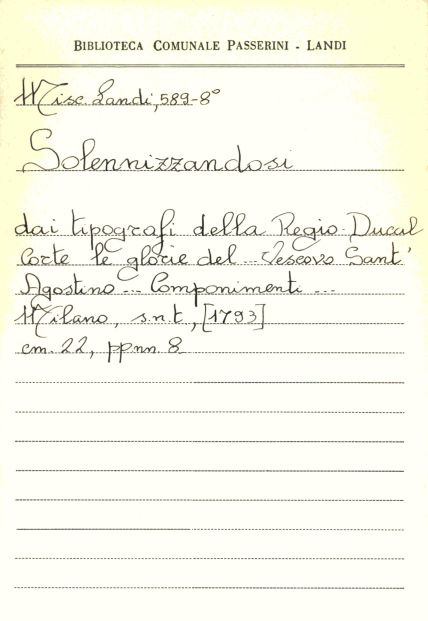 BIBLIOTECA COMUNALE PASSERINI - LANDI
Misc. Landi, 589-8°
Solennizzandosi
dai tipografi della Regio-Ducal
Corte le glorie del ... Vescovo Sant'
Agostino ... Componimenti ...
Milano, s.n.t., [1793]
cm. 22, pp.nn. 8